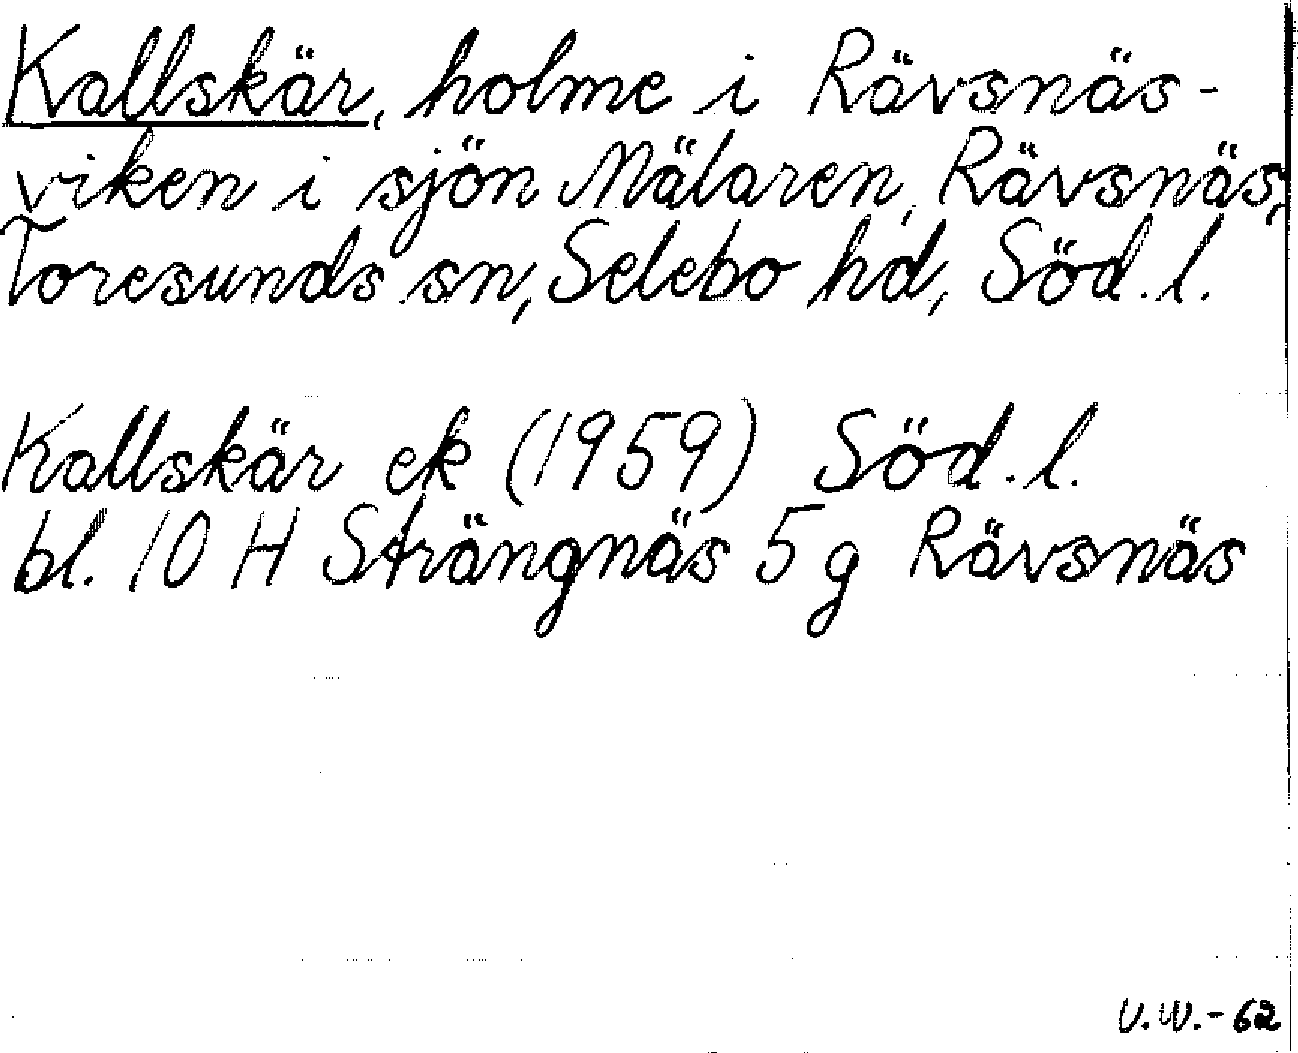 Kallskär, holme i Rävsnäs-
viken i sjön Mälaren, Rävsnäs,
Toresunds sn, Selebo hd, Söd. l.
Kallskär ek (1959) Söd. l.
bl. 10 H Strängnäs 5 g Rävsnäs
V.W.-62